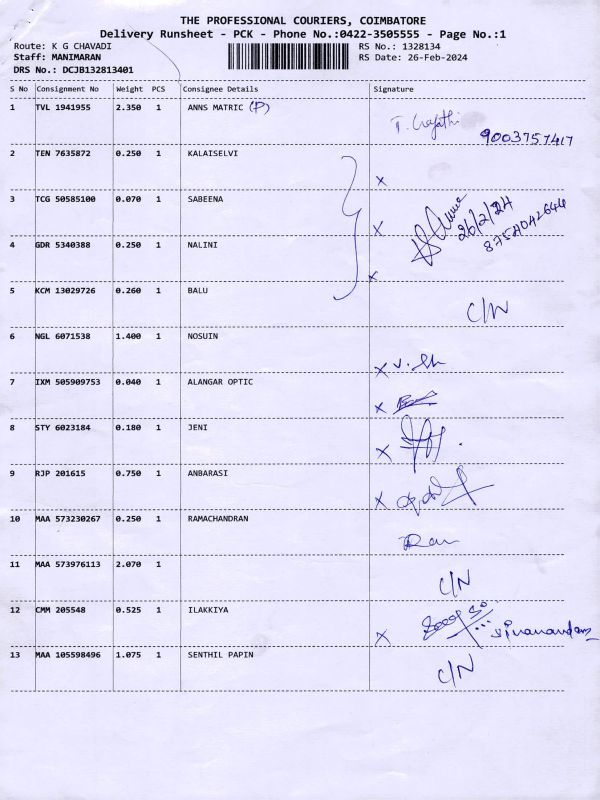 THE PROFESSIONAL COURIERS, COIMBATORE
Delivery Runsheet - PCK - Phone No.:0422-3505555 - Page No.:1
Route: K G CHAVADI RS No.: 1328134
Staff: MANIMARAN RS Date: 26-Feb-2024
DRS No.: DCJB132813401
S No Consignment No Weight PCS Consignee Details Signature
1 TVL 1941955 2.350 1 ANNS MATRIC (P)
9003757417
2 TEN 7635872 0.250 1 KALAISELVI
X
3 TCG 50585100 0.070 1 SABEENA
X 26/2/24
4 GDR 5340388 0.250 1 NALINI
X
5 KCM 13029726 0.260 1 BALU
C/N
6 NGL 6071538 1.400 1 NOSUIN
X
7 IXM 505909753 0.040 1 ALANGAR OPTIC
X
8 STY 6023184 0.180 1 JENI
X
9 RJP 201615 0.750 1 ANBARASI
X
10 MAA 573230267 0.250 1 RAMACHANDRAN
11 MAA 573976113 2.070 1
C/N
12 CMM 205548 0.525 1 ILAKKIYA
X
13 MAA 105598496 1.075 1 SENTHIL PAPIN
C/N